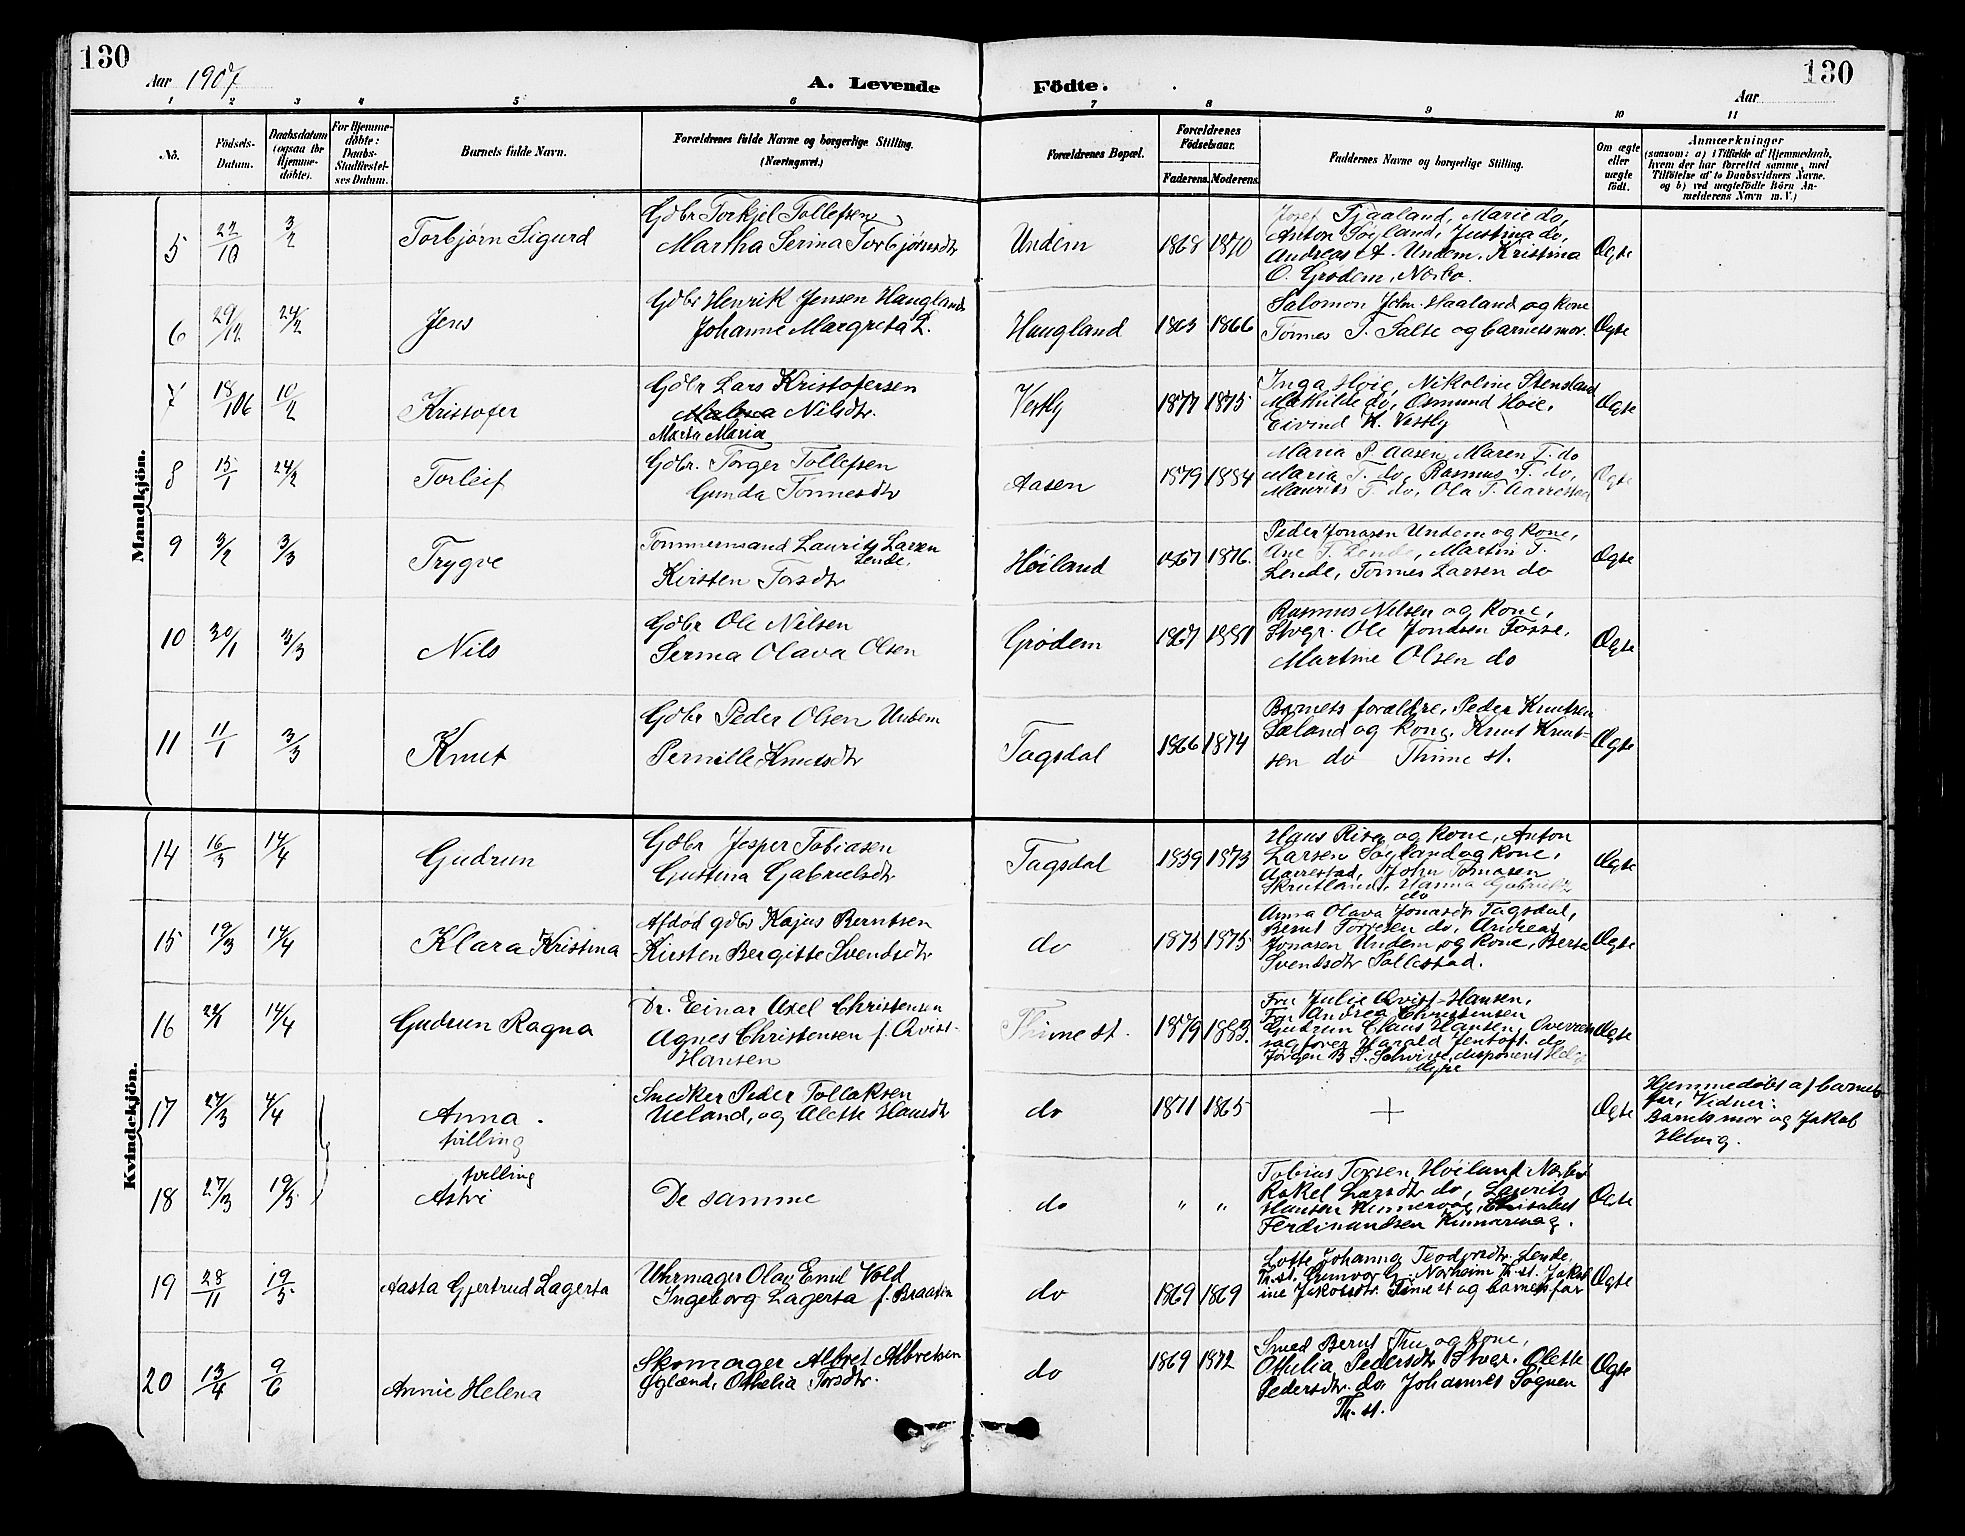 130
Aar 1907
A. Levende Födte.
130
Aar
1 2 3 4 5 6 7 8 9 10 11
No.
Födsels-Datum.
Daabsdatum (ogsaa for Hjemmedöbte).
For Hjemmedöbte: Daabs-Stadfæstelses Datum.
Barnets fulde Navn.
Forældrenes fulde Navne og borgerlige Stilling. (Næringsvei.)
Forældrenes Bopæl.
Forældrenes Födselsaar.
Faderens. Moderens.
Faddernes Navne og borgerlige Stilling.
Om ægte eller uægte födt.
Anmærkninger
(saasom: a) i Tilfælde af Hjemmedaab, hvem der har forrettet samme, med Tilföielse af to Daabsvidners Navne, og b) ved uægtefödte Börn Anmelderens Navn m. V.)
Mandkjön.
5 22/10 3/2 Torbjørn Sigurd
Gdbr Torkjel Tollefsen
Martha Serina Torbjørnsdtr
Undem 1868 1870
Josef Tjaaland, Marie do,
Anton Søyland, Justina do,
Andreas A. Undem, Kristina
O. Grødem, Nærbø.
Ægte
6 29/12 24/2 Jens
Gdbr Henrik Jensen Haugland
Johanne Margreta L.
Haugland 1863 1866
Salomon Joh. Haaland og kone
Tønnes T. Salte og barnets mor.
Ægte
7 18/1 06 10/2 Kristofer
Gdbr Lars Kristofersen
Nilsdtr.
Marta Maria
Vestly 1877 1875
Inga Høie, Nikoline Stensland
Mathilde do, Osmund Høie,
Eivind K. Vestly
Ægte
8 15/1 24/2 Torleif
Gdbr. Torger Tollefsen
Gunda Tønnesdtr
Aasen 1879 1884
Maria P. Aasen, Maren T. do
Maria T. do, Rasmus T. do,
Maurits T. do, Ola T. Aarrestad
Ægte
9 3/2 3/3 Trygve
Tømmermand Laurits Larsen
Lende,
Kirsten Torsdtr
Høiland 1867 1876.
Peder Jonasen Undem og kone,
Ane T. Lende, Martin T.
Lende, Tønnes Larsen do
Ægte
10 30/1 3/3 Nils
Gdbr Ole Nilsen
Serina Olava Olsen
Grødem 1867 1881
Rasmus Nilsen og kone,
Stvgr. Ole Jondsen Fosse,
Martine Olsen do
Ægte
11 11/1 3/3 Knut
Gdbr Peder Olsen Undem
Pernille Knutsdtr
Tagsdal 1866 1874
Barnets forældre, Peder Knutsen
Sæland og kone, Knut Knut-
sen do Thime st.
Ægte
Kvindekjön.
14 16/3 14/4 Gudrun
Gdbr Jesper Tobiasen
Gustina Gabrielsdtr
Tagsdal 1859 1873
Hans Risa og kone, Anton
Larsen Søyland og kone,
Aarrestad, John Tomasen
Skrutland, Hanna Gabrielsdtr
do
Ægte
15 19/3 14/4 Klara Kristina
Afdød gdbr Kajus Berntsen
Kirsten Bergitte Svendsdtr
do 1875 1875
Anna Olava Jonasdtr Tagsdal,
Bernt Torresen do, Andreas
Jonasen Undem og kone, Berta
Svendsdtr Tollestad.
Ægte
16 14/4 Gudrun Ragna
Dr. Einar Axel Christensen
Agnes Christensen f. Qvist-
Hansen
Thime st. 1879 1883.
Fru Julie Qvist-Hansen,
Fru Andrea Christensen
Gudrun Claus Hansen, Overrets
sagfører Harald Jentoft do
Jørgen B. S. disponent Helge
Myre
Ægte
17 27/3 4/4 Anna
tvilling
Snedker Peder Tollaksen
Ueland, og Alette Hansdtr
do 1871 1865
+
Ægte
Hjemmedøbt af barnets
far, Vidner:
Barnets mor og Jakob
Helvig.
18 27/3 19/5
tvilling
Astri
De samme
do " "
Tobias Torsen Høiland Nærbø
Rakel Larsdtr do, Laurits
Hansen Kinnervag, Elisabet
Ferdinandsen Kinnervag.
Ægte
19 28/11 19/5 Aasta Gjertrud Lagerta
Uhrmager Olav Emil Vold
Ingeborg Lagerta f. Braaten
do 1869 1869
Lotte Johanna Teodorsdtr. Lende
Th. st. Gunvor G. Norheim Th. st. Jakob
ine Jakobsdtr. Time st og barnets far
Ægte
20 13/4 9/6 Annie Helena
Skomager Albret Albretsen
Øglænd, Othelia Torsdtr.
do 1869 1872
Smed Bernt Thu og kone,
Othelia Pedersdtr Stvgr. Olette
Pedersdtr. do, Johannes Sognen
Th. st.
Ægte